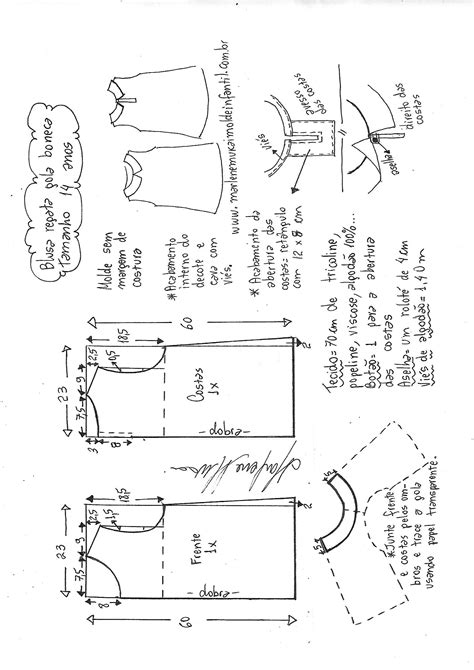 Blusa regata gola boneca
Tamanho 14 anos
Molde sem
margem de
costura
*Acabamento
interno do
decote e
cava com
viés.
www.marlenemukaimoldeinfantil.com.br
*Acabamento da
abertura das
costas= retângulo
com 12 x 8 cm
viés
avesso
das costas
aselha
direito das
costas
Tecido= 70 cm de tricoline,
popeline, viscose, algodão 100%...
Botão= 1 para a abertura
das costas
Aselha= um rolotê de 4 cm
Viés de algodão= 1,40 m
60
18,5
2,5
1,5
23
9
7,5
3
8
2
Costas
1x
dobra
Marlene Mukai
60
18,5
2,5
1,5
23
9
7,5
8
2
Frente
1x
dobra
*Junte frente
e costas pelos om-
bros e trace a gola
usando papel transparente.